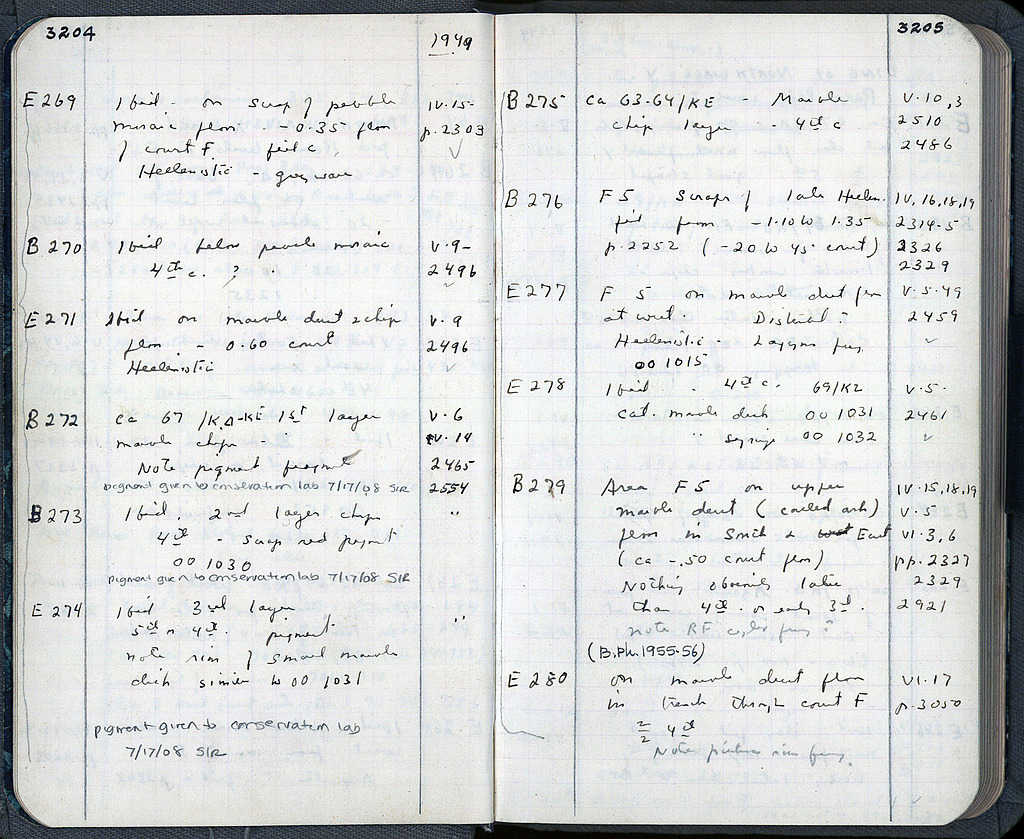 3204
1949
E 269 Ibid - on scrap of pebble IV-15-
mosaic floor - -0.35 floor p. 2303
of court F. ✓
Hellenistic grey ware
B 270 Ibid below pebble mosaic V-9-
4th c. ? 2496
E 271 Ibid on marble dust & chip V-9
floor - 0.60 court 2496
Hellenistic ✓
B 272 ca 67 /ΚΔ-ΚΕ 1st layer V-6
marble chips - IV-14
Note pigment fragment 2465
pigment given to conservation lab 7/17/08 SIR 2554
B 273 Ibid, 2nd layer chips "
4th - scrap red pigment
00 1030
pigment given to conservation lab 7/17/08 SIR
E 274 Ibid 3rd layer "
5th or 4th. pigment
note rim of small marble
dish similar to 00 1031
pigment given to conservation lab
7/17/08 SIR
3205
B 275 ca 63-64/KE - Marble V-10,3
chip layer - 4th c 2510
2486
B 276 F5 Scraps of late Hellen. IV, 16,18,19
from -1.10 to 1.35 2314-5
p. 2252 (-20 to 45 court) 2326
2329
E 277 F 5 on marble dust floor V-5-49
at west - 2459
Hellenistic - Lagynos frag ✓
00 1015
E 278 Ibid. 4th c. 69/ΚΖ V-5-
cat. marble dish 00 1031 2461
" syringe 00 1032 ✓
B 279 Area F5 on upper IV-15,18,19
marble dust (called ash) V-5
floor in South & East VI-3,6
(ca -.50 court floor) pp. 2327
Nothing obviously later 2329
than 4th or early 3rd. 2921
note RF frag ?
(B.Ph. 1955-56)
E 280 on marble dust floor VI-17
in trench through court F p. 3050
2/2 4th
Note frag.